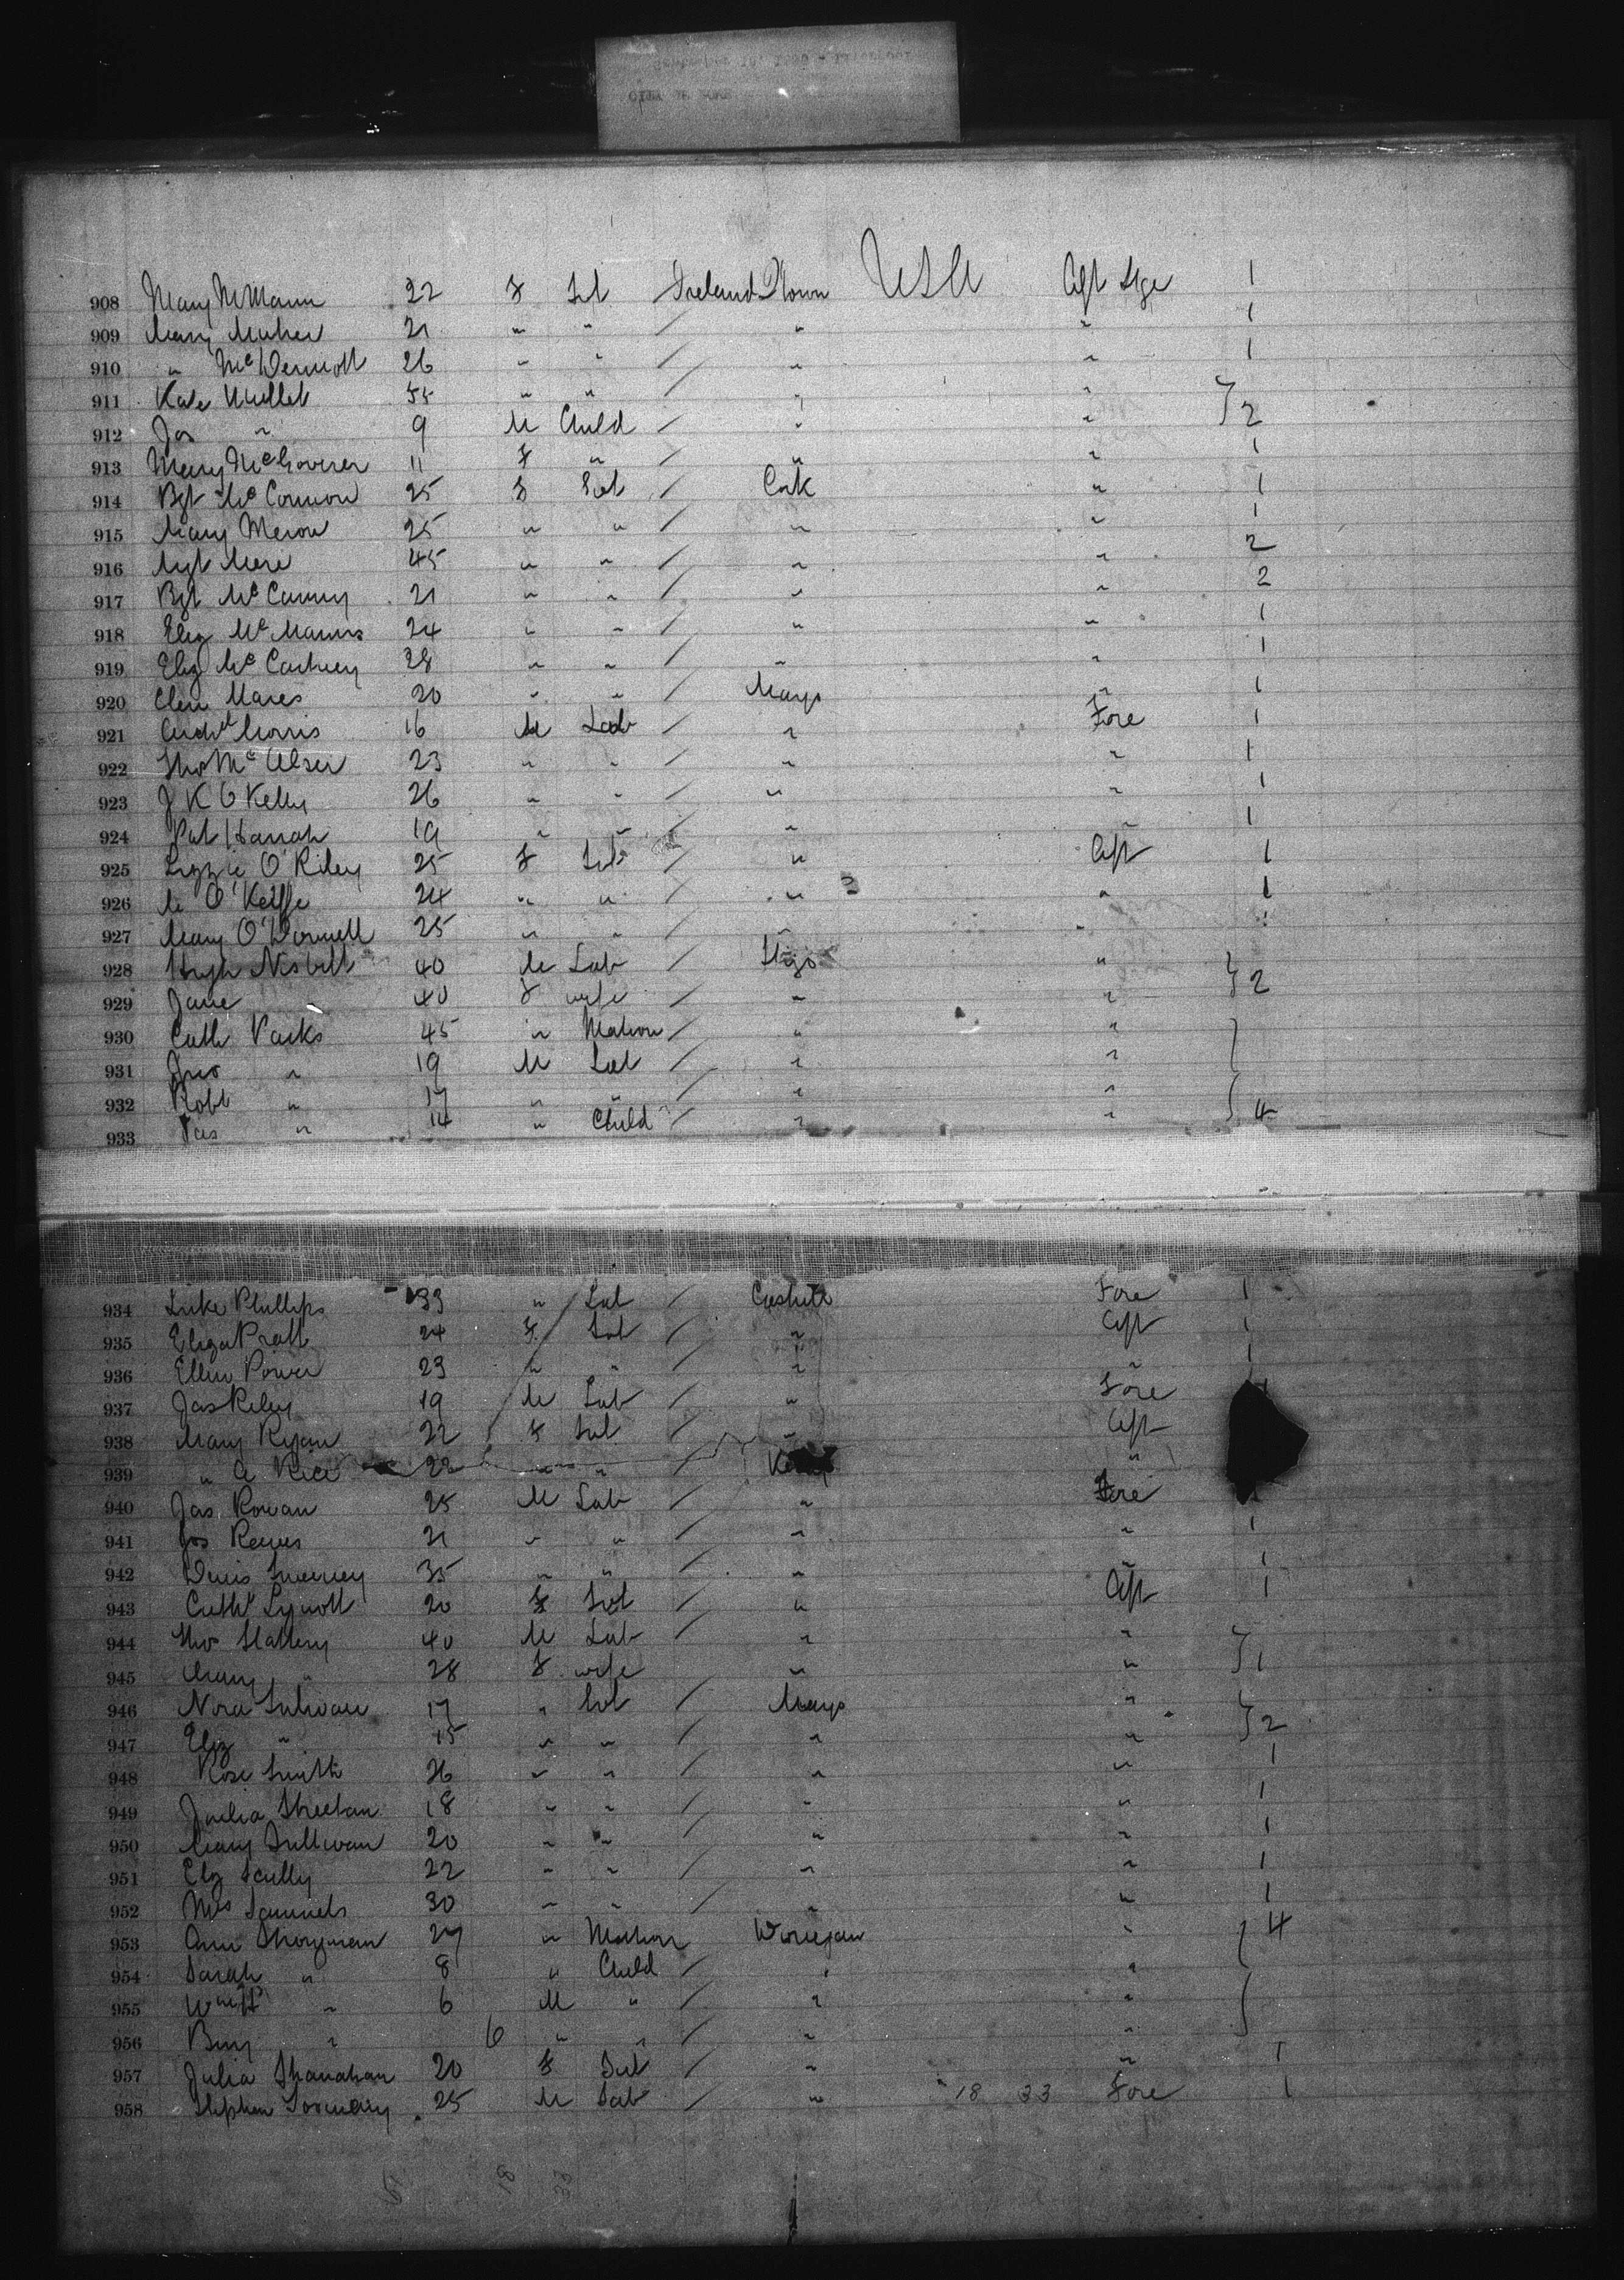 908 Mary McMann 22 F Svt / Ireland Qtown USA Aft Stge 1
909 Mary Maher 21 " " / " " 1
910 " McDermott 26 " " / " " 1
911 Kate Mullet 55 " " / " " } 2
912 Jos " 9 M Child / " "
913 Mary McGoverer 11 F " / " " 1
914 Bgt McConnon 25 F Svt / Cork " 1
915 Mary Meron 25 " " / " " 1
916 Mgt Mere 45 " " / " " 2
917 Bgt McCanny 21 " " / " " 2
918 Eliz McManus 24 " " / " " 1
919 Eliz McCartney 28 " " / " " 1
920 Ellen Mares 20 " " / Mayo " 1
921 Andw Morris 16 M Lab / " Fore 1
922 Thos 23 " " / " " 1
923 J K O Kelly 26 " " / " " 1
924 Pat Harrah 19 " " / " " 1
925 Lizzie O'Riley 25 F Svt / " Aft 1
926 M O'Keiffe 24 " " / " " 1
927 Mary O'Donnell 25 " " / " " 1
928 Hugh Nisbitt 40 M Lab / Sligo " } 2
929 Jane 40 F wife / " "
930 Cath Parks 45 " Matron / " " }
931 Jno " 19 M Lab / " "
932 Robt " 17 " " / " " } 4
933 " 14 " Child / " "
934 Luke Phillips 33 " Lab / Fore 1
935 Eliza Pratt 24 F Svt / " Aft 1
936 Ellen Power 23 " " / " " 1
937 Jas Riley 19 M Lab / " Fore
938 Mary Ryan 22 F Svt / " Aft
939 " A Rice 22 " " / Kerry "
940 Jas Rowan 25 M Lab / " Fore
941 Jos Reeves 21 " " / " " 1
942 Denis Sweeney 35 " " / " " 1
943 Cath Synott 20 F Svt / " Aft 1
944 Thos Slattery 40 M Lab / " " } 1
945 Mary " 28 F wife " "
946 Nora Sulivan 17 " Svt / Mayo " } 2
947 Eliz " 15 " " / " "
948 Rose Smith 26 " " / " " 1
949 Julia Sheehan 18 " " / " " 1
950 Mary Sullivan 20 " " / " " 1
951 Elz Scully 22 " " / " " 1
952 Mrs Samuels 30 " " / " " 1
953 Ann 27 " Matron " } 4
954 Sarah " 8 " Child / " "
955 Wm H " 6 M " / " " }
956 Benj " 6 " " / " "
957 Julia Shanahan 20 F Svt / " " 1
958 Stephen 25 M Lab / " 18 33 Fore 1
18 33